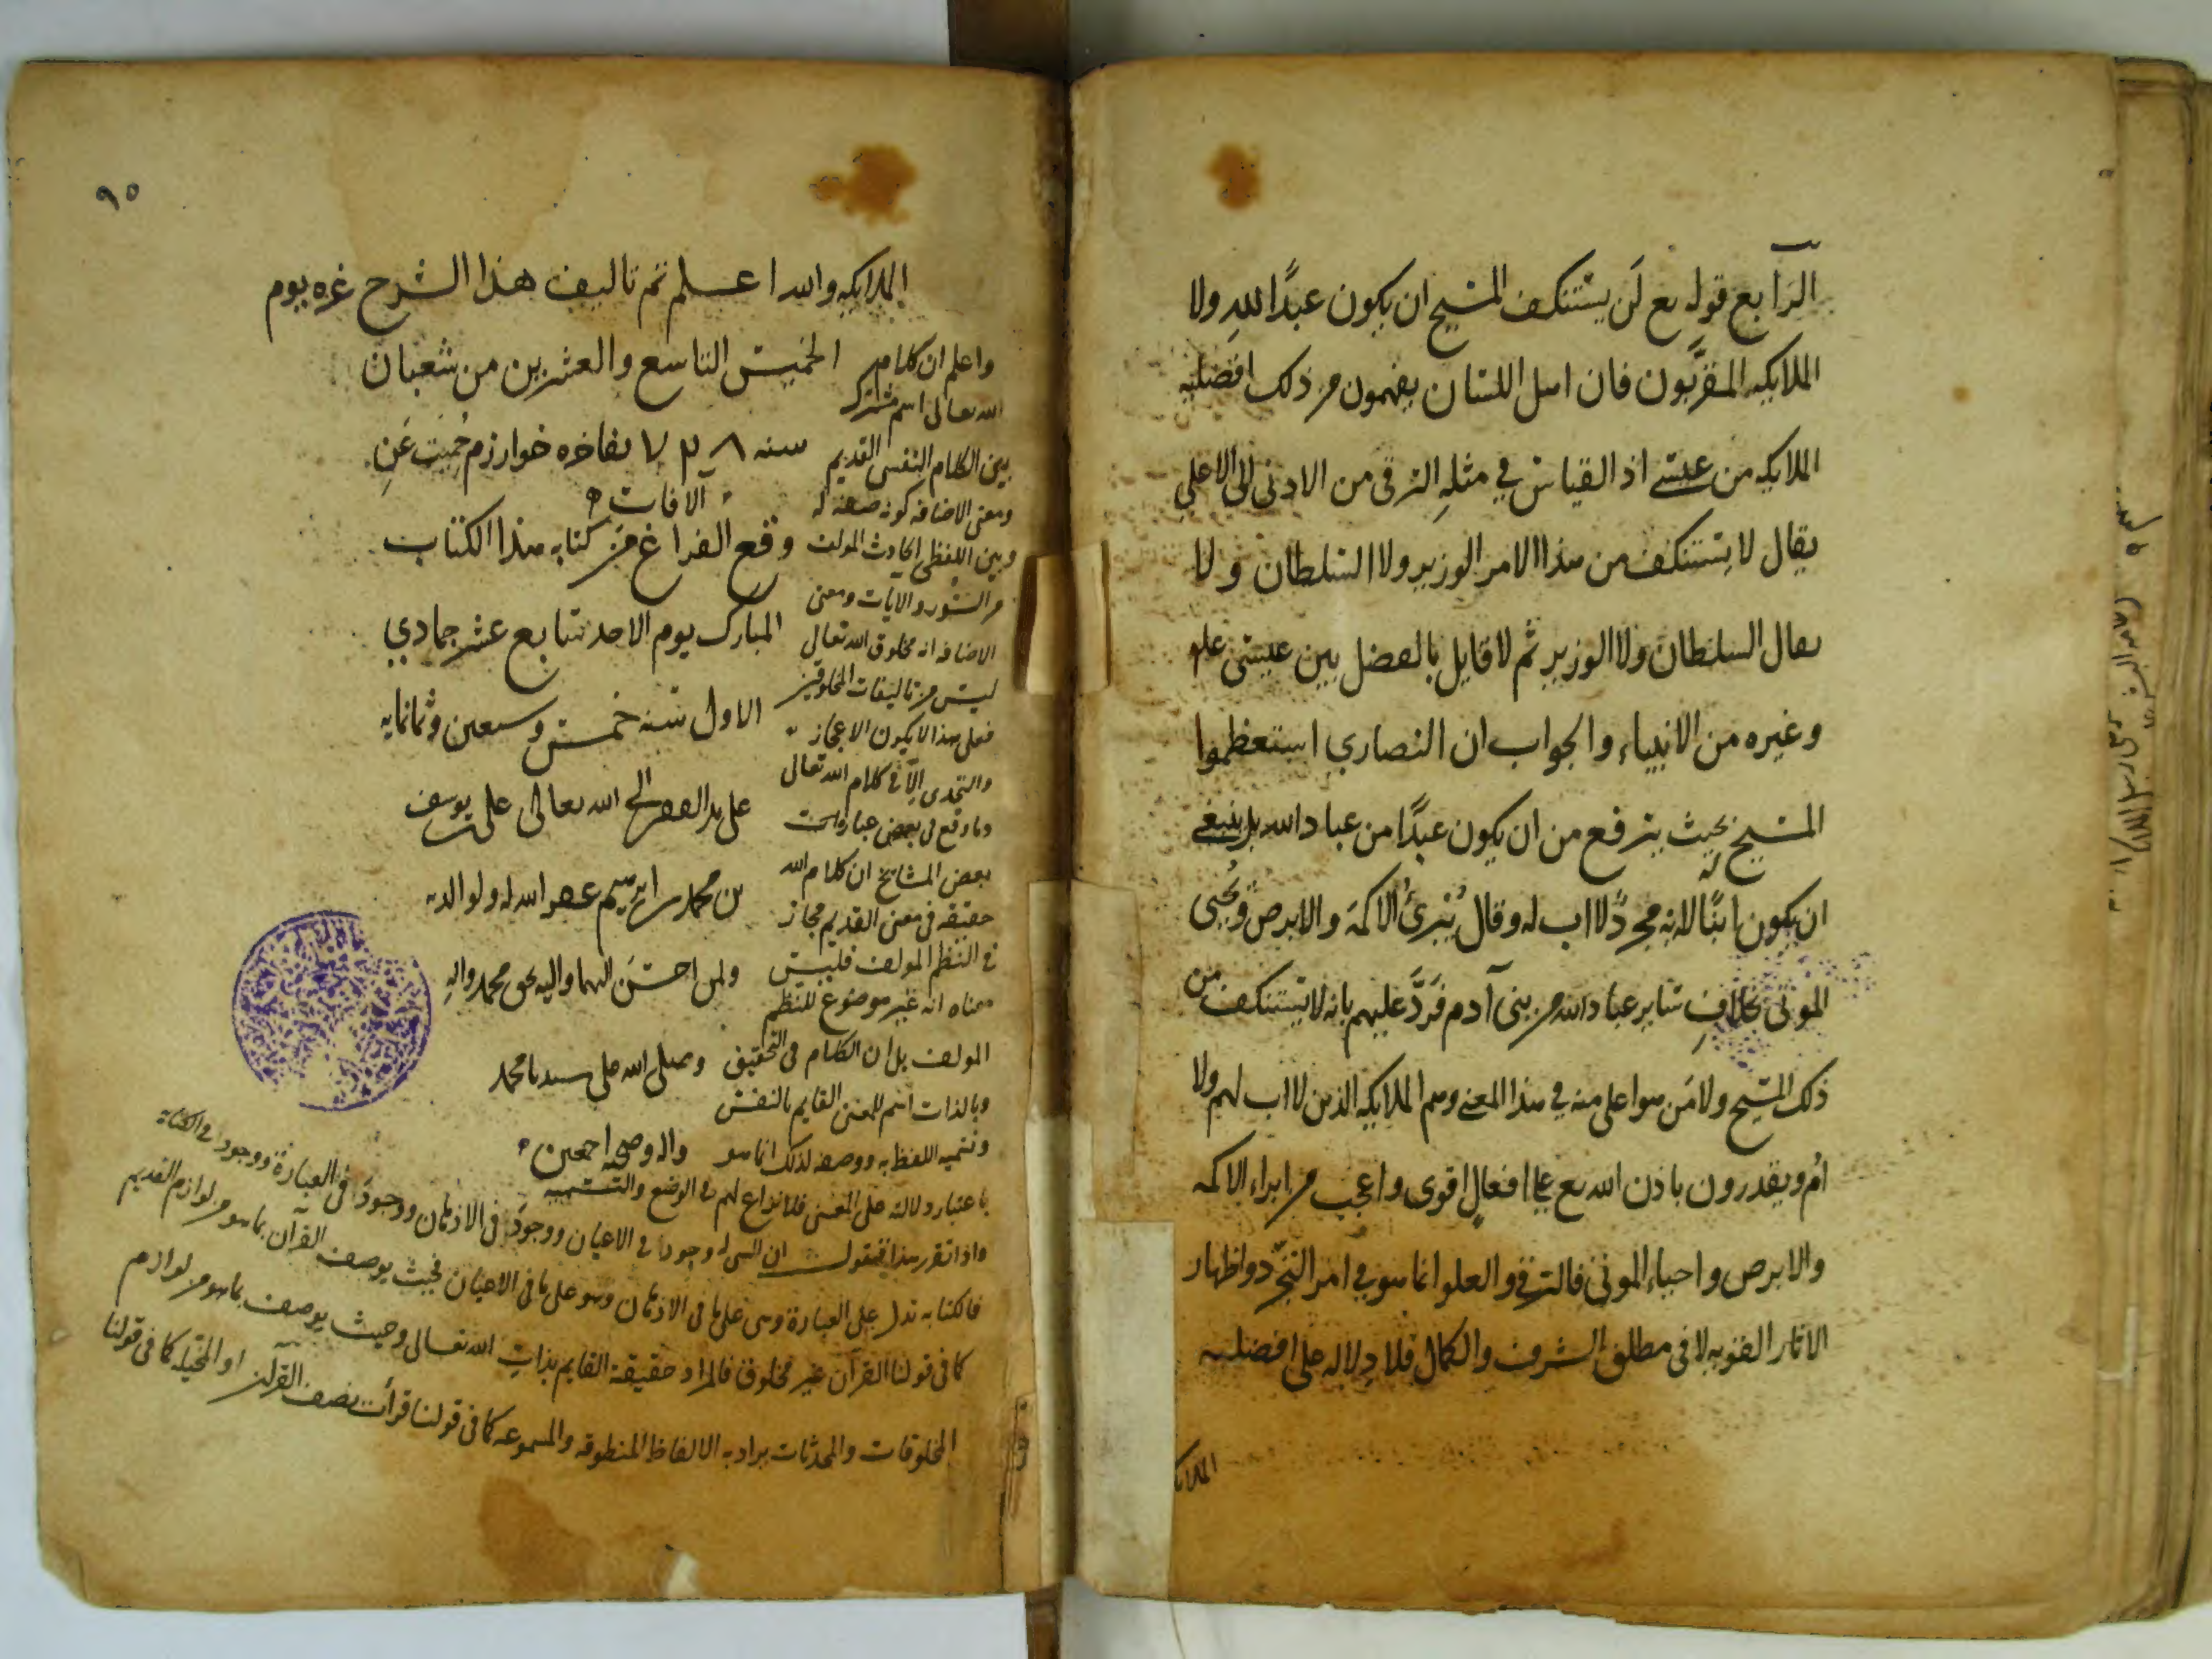 الرابع قوله تع لَن يستنكف المسيح ان يكون عبدًا للهِ ولا
الملايكه المقرَّبون فان اهل اللسان يفهمون من ذلك افضليه
الملايكه من عيسى اذ القياس في مثلهِ الترقى من الادنى الى الاعلى
يقال لا يستنكف من هذا الامر الوزير ولا السلطان ولا
يقال السلطان ولا الوزير ثم لا قايل بالفضل بين عيسى علم
وغيره من الانبياء والجواب ان النصارى استعظموا
المسيح بحيث يترفع من ان يكون عبدًا من عباد الله بل ينبغى
ان يكون ابنًا له لانه مجردًلا اب له وقال يُبرئُ الاكمهَ والابرص ويُحيى
الموتى بخلافِ ساير عباد الله من بنى آدم فَرَدَّ عليهم بانه لا يستنكف من
ذلك المسيح ولا مَن هو اعلى منه في هذا المعنى وهم الملايكه الذين لا اب لهم ولا
اُم ويقدرون باذن الله تع على افعالٍ اقوى واعجب من ابراء الاكمه
والابرص واحياء الموتى فالترقى والعلو انما هو في امر التجرّد واظهار
الاثار القويه لا فى مطلق الشرف والكمال فلا دلاله على افضليه
الملايكه
٩٥
الملايكه والله اعلم تم تاليف هذا الشرح غره يوم
الخميس التاسع والعشرين من شعبان
سنه ٧٣٨ بفاخره خوارزم حُمِيَت عَنِ
الافات
وقع الفراغ من كتابه هذا الكتاب
المبارك يوم الاحد سابع عشر جمادي
الاول سنه خمس وسبعين وثمانمايه
على يد الفقير الى الله تعالى على بن يوسف
بن محمد بن ابرهيم غفر الله له ولوالديه
ولمن احسَن اليهما واليه بحق محمد والهِ
وصلى الله على سيدنا محمد
واله وصحبه اجمعين
واعلم ان كلام
الله تعالى اسم مشترك
بين الكلام النفسى القديم
ومعنى الاضافه كونه صفه له
وبين اللفظى الحادث المولف
من السور والايات ومعنى
الاضافه انه مخلوق الله تعالى
ليس من تاليفات المخلوقين
فعلى هذا لا يكون الاعجاز
والتحدى الّا في كلام الله تعالى
وما وقع فى بعض عبارات
بعض المشايخ ان كلام الله
حقيقه فى معنى القديم مجاز
في النظم المولف فليس
معناه انه غير موضوع للنظم
المولف بل ان الكلام فى التحقيق
وبالذات اسم للمعنى القايم بالنفس
وتسميه اللفظ به ووصفه لذلك انما هو
باعتبار دلالته على المعنى فلا نزاع لهم فى الوضع والتسميه
واذا تقرر هذا فنقول ان للشى له وجودا في الاعيان ووجودًا فى الاذهان ووجودًا فى العبارة ووجودا فى الكتابة
فالكتابه تدل على العبارة وهى على ما فى الاذهان وهو على ما فى الاعيان فحيث يوصف القرآن بما هو من لوازم القديم
كما فى قولنا القرآن غير مخلوق فالمراد حقيقة القايم بذات الله تعالى وحيث يوصف بما هو من لوازم
المخلوقات والمحدثات يراد به الالفاظ المنطوقه والمسموعه كما فى قولنا قرأت نصف القرآن او المخيله كما فى قولنا